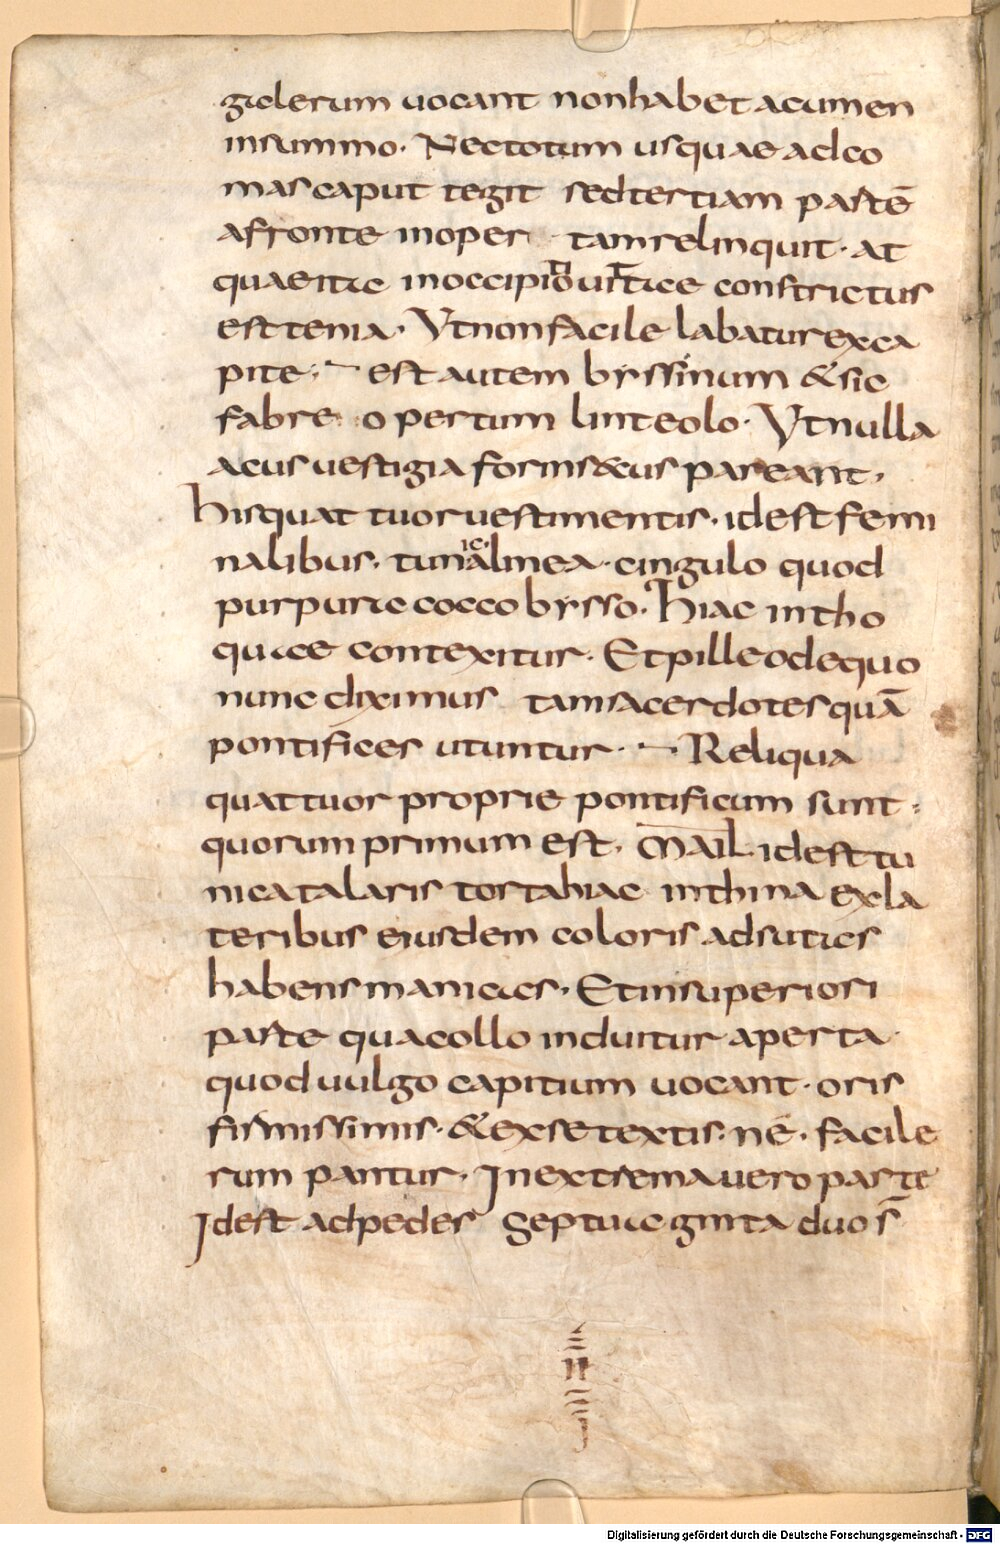 galerum uocant non habet acumen
in summo. Nec totum usquae adeo
mas caput tegit sed tertiam partē
afronte inoper tam relinquit. at
quae itac in occipitio uitctace constrictus
est tenia. Vt non facile labatur ex ca
pite; est autem byssinum & sic
fabre opertum linteolo. Vt nulla
acus uestigia forins&us pareant,
hisquattuor uestimentis. id est femi
nalibus. tunicalinea. cingulo quod
purpurac cocco bysso. hiac intho
quace contexitur. Et pilleo de quo
nunc diximus tam sacerdotes quā
pontifices utuntur. Reliqua
quattuor proprie pontificum sunt;
quorum primum est. MAIL. id est tu
nica talaris torta hiac inthina ex la
teribus eiusdem coloris adsutacs
habens manicacs. Et in superiori
parte qua collo induitur aperta
quod uulgo capitium uocant. oris
firmissimis. & ex se textis. ne. facile
rumpantur. In extrema uero parte
Id est ad pedes septuacginta duo s̄
II
Digitalisierung gefördert durch die Deutsche Forschungsgemeinschaft - DFG